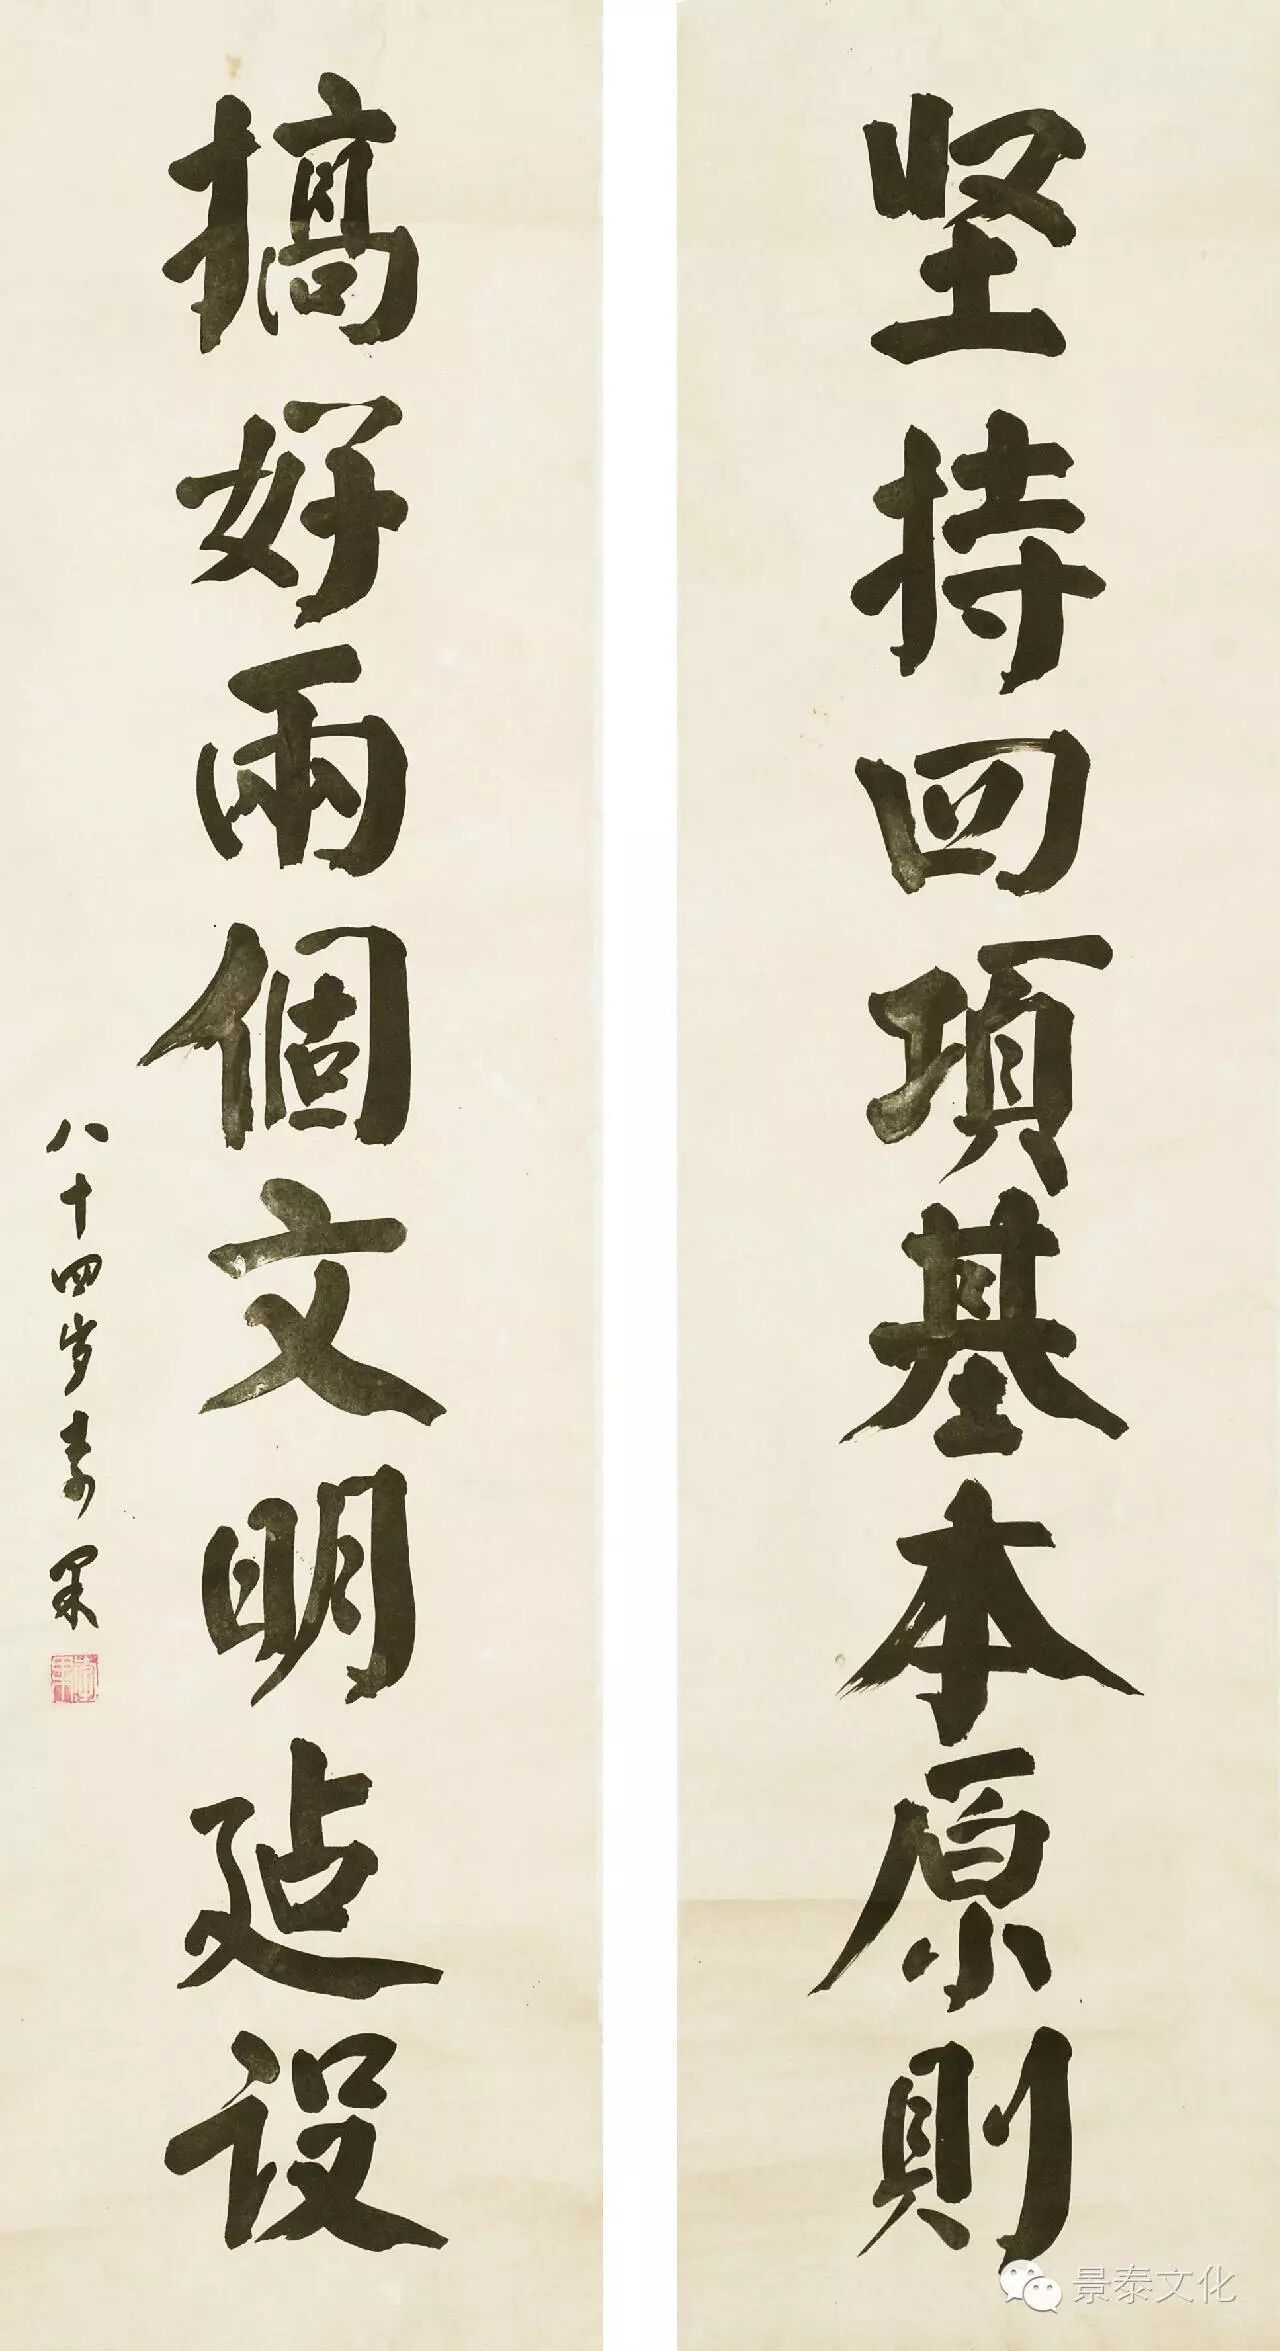 坚持四項基本原則
搞好兩個文明建设
八十四岁
景泰文化